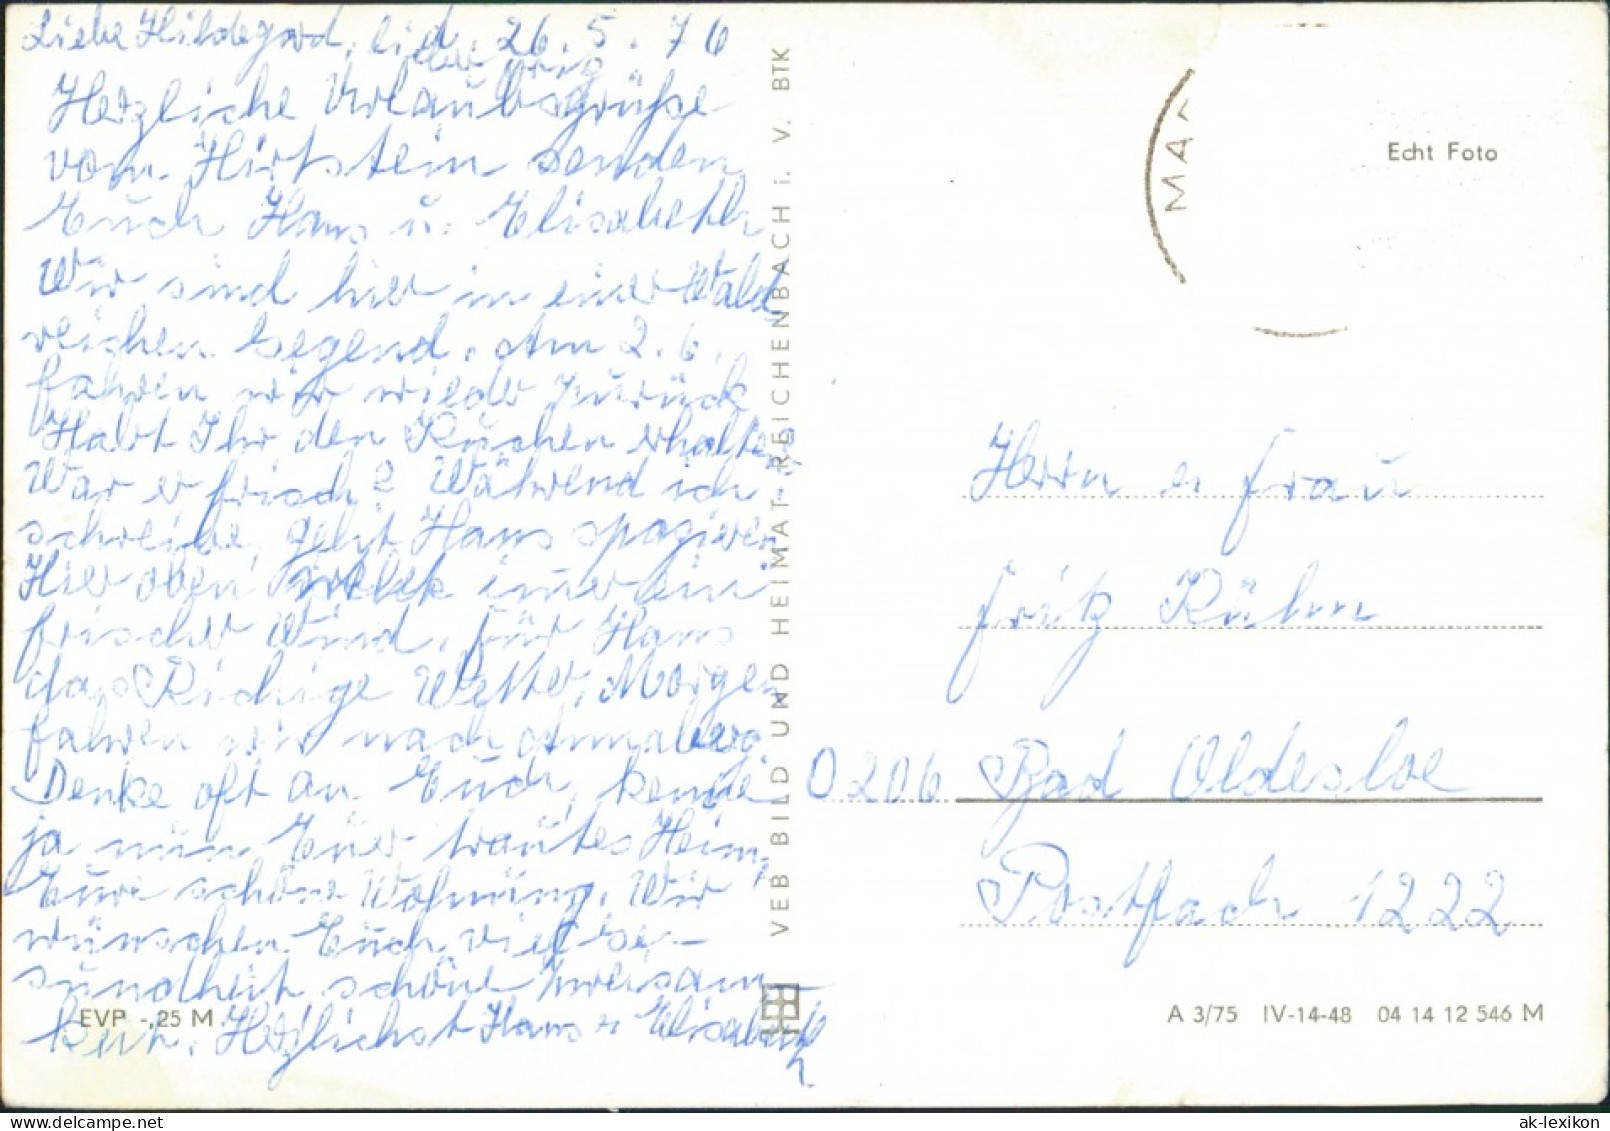 Liebe Hildegard, 26.5.76
Herzliche Urlaubsgrüße
vom Hirtstein senden
Euch Hans u. Elisabeth
Wir sind hier in einer Wald
reichen Gegend. Am 2.6.
fahren wir wieder zurück
Habt Ihr den Kuchen erhalten
War er frisch? Während ich
schreibe, geht Hans spazieren
Hier oben immer ein
frischer Wind, für Hans
das Richige Wetter, Morgen
fahren wir nach Annaberg
Denke oft an Euch, kenne
ja nun Euer trautes Heim,
Eure schöne Wohnung. Wir
wünschen Euch viel Ge-
sundheit schöne
keit. Herzlichst Hans u Elisabeth
EVP -,25 M
VEB BILD UND HEIMAT REICHENBACH i. V. BTK
MA
Echt Foto
Herrn u. Frau
Fritz Kühn
0206 Bad Oldesloe
Postfach 1222
A 3/75 IV-14-48 04 14 12 546 M
ak-lexikon